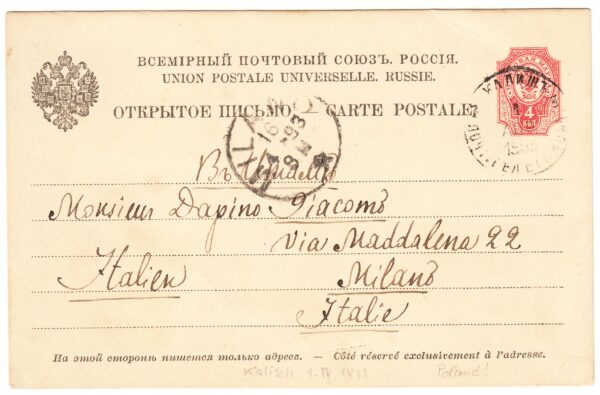 ВСЕМІРНЫЙ ПОЧТОВЫЙ СОЮЗЪ. РОССІЯ.
UNION POSTALE UNIVERSELLE. RUSSIE.
ОТКРЫТОЕ ПИСЬМО. CARTE POSTALE.
4
КОП
КАЛИШЪ
MILANO
16
93
Въ
Monsieur Dapino Giacomo
via Maddalena 22
Italien Milano
Italie
На этой сторонѣ пишется только адресъ. — Côté réservé exclusivement à l'adresse.
Kalisch 1893 Poland!